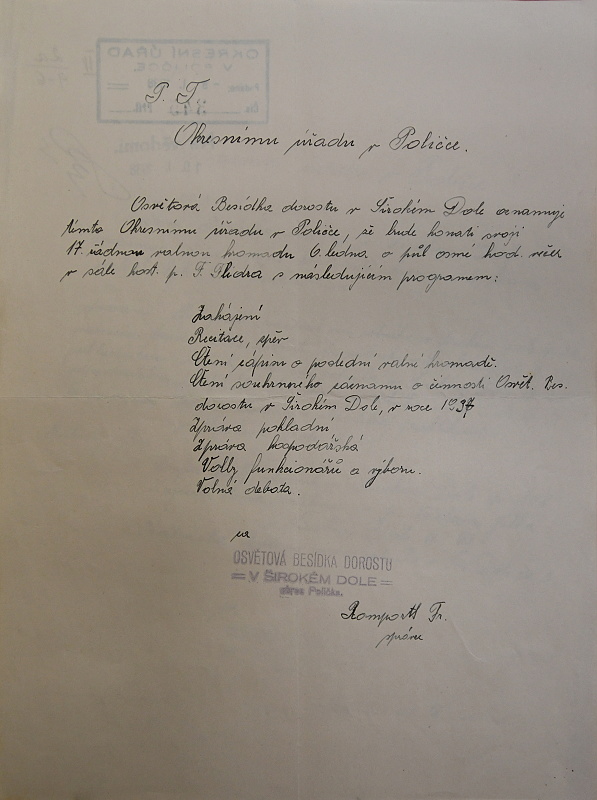 P. T.
Okresnímu úřadu v Poličce.
Osvětová Besídka dorostu v Širokém Dole oznamuje
tímto Okresnímu úřadu v Poličce, že bude konati svoji
17. řádnou valnou hromadu 6. ledna o půl osmé hod. večer
v sále host. p. F. Flídra s následujícím programem:
Zahájení
Recitace, zpěv
Čtení zápisu o poslední valné hromadě.
Čtení souhrnného záznamu o činnosti Osvět. Bes.
dorostu v Širokém Dole, v roce 1937
Zpráva pokladní
Zpráva hospodářská
Volby funkcionářů a výboru.
Volná debata.
za
OSVĚTOVÁ BESÍDKA DOROSTU
= V ŠIROKÉM DOLE =
okres Polička.
Romportl Fr.
správce
OKRESNÍ ÚŘAD
V POLIČCE